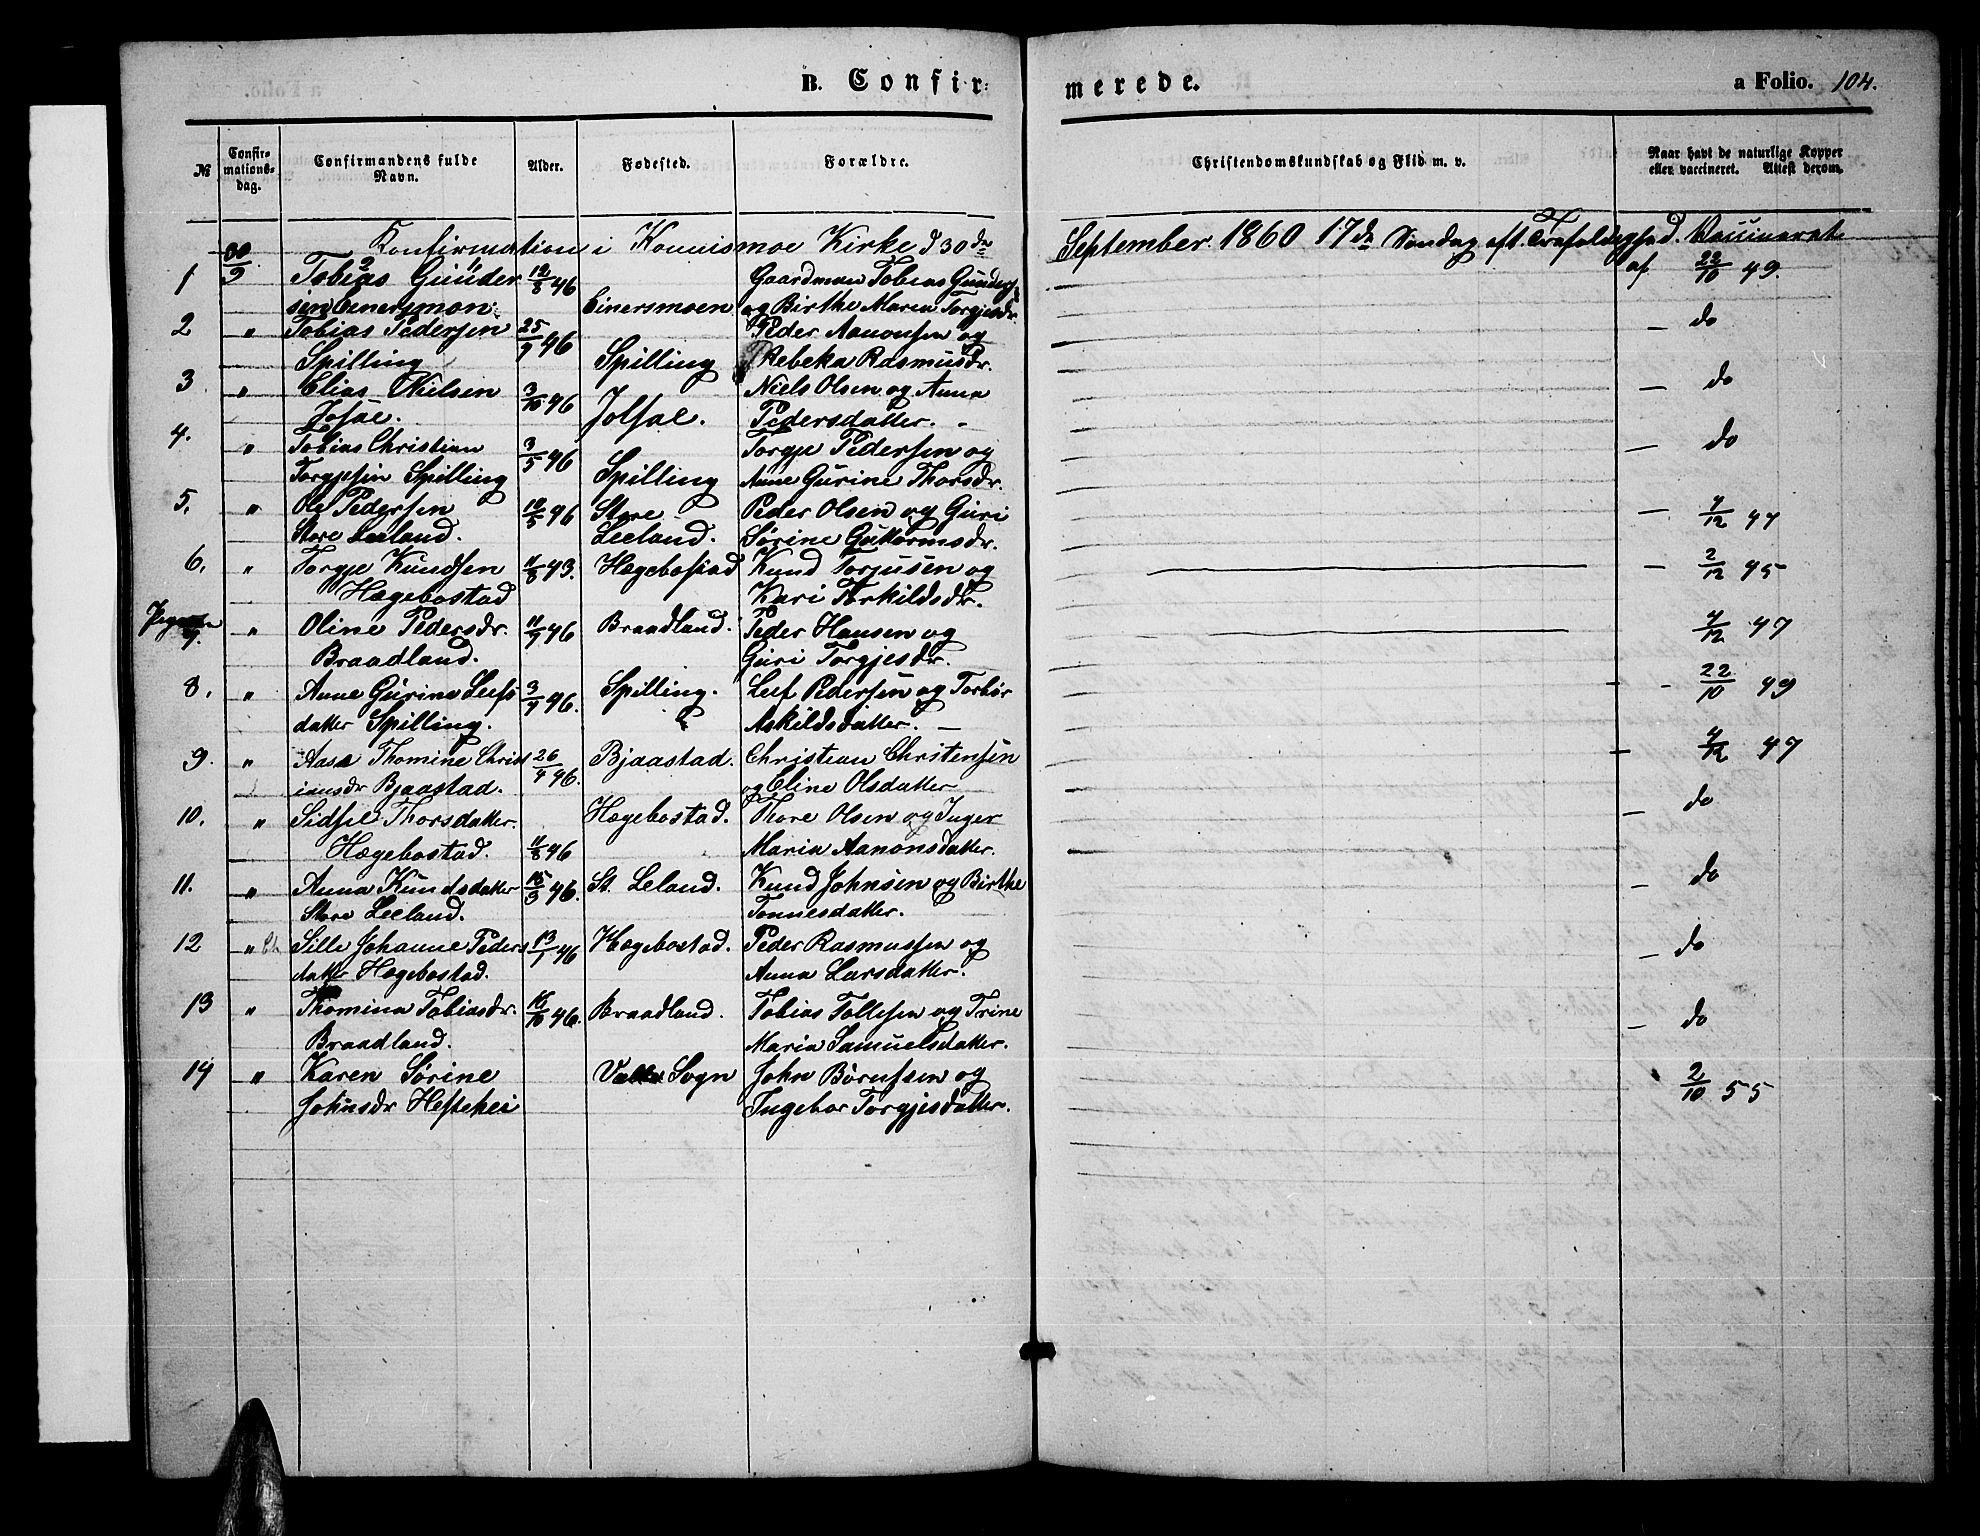 B. Confir=
merede.
a Folio. 104.
№ Confir=mations=dag. Confirmandens fulde Navn. Alder. Fødested. Forældre. Christendomskundskab og Flid m. v. Naar havt de naturlige Kopper eller vaccineret. Attest derom.
Konfirmation i Konnismoe Kirke d 30de September. 1860 17de Søndag eft. Trefoldighed. Vaccineret
1 30/9 Tobias Gunder 12/8 46 Gaardman Tobias Gunders af 22/10 49.
sen Einersmon: Einersmoen og Birthe Maria Torgjesdr.
2 " Tobias Pedersen 25/9 46 Peder Aanonsen og — do
Spilling Spilling Rebeka Rasmusdr.
3. " Elias Nielsen 3/10 46 Niels Olsen og Anna — do
Jofae. Jolfae. Pedersdatter. -
4. " Tobias Christian 3/5 46 Torgje Pedersen og — do
Torgjesen Spilling Spilling Anne Gurine Thorsdr.
5. " Ole Pedersen 12/5 46 Store Peder Olsen og Guri — 7/12 47
Store Leeland. Leeland. Sørine Guttormsdr.
6. " Torgje Knudsen 11/8 43. Hægebostad Knud Torjusen og — 2/12 45
Hægebostad Kari Torkildsdr.
Pigerne
7. " Oline Pedersdr. 11/7 46 Braadland. Peder Hansen og 7/12 47
Braadland. Guri Torgjesdr.
8. " Anne Gurine Leefs 3/7 46. Spilling. Leef Pedersen og Torbør - 22/10 49
datter Spilling. Askildsdatter. —
9. " Aase Thomine Christ 26/4 46. Bjaastad. Christian Christensen — 7/12 47
iansdr Bjaastad. og Eline Olsdatter
10. " Sidsel Thorsdatter. Hægebostad. Thore Olsen og Inger — do
Hægebostad. 11/8 46 Maria Aanonsdatter.
11. " Anna Knudsdatter 15/3 46. St. Leland. Knud Johnsen og Birthe — do
Store Leeland. Tønnesdatter.
12 " Sille Johanne Peders 13/1 46 Hægebostad. Peder Rasmussen og — do
datter Hægebostad. Anna Larsdatter.
13 " Thomina Tobiasdr. 16/10 46. Braadland. Tobias Tollefsen og Trine — do
Braadland. Maria Samuelsdatter.
14 " Karen Sørine Sogn John Børufsen og 2/10 55
Johnsdr Heftehei Ingebor Torgjesdatter.